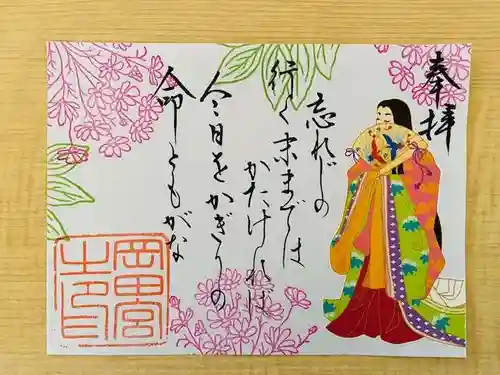 奉拝
忘れじの
行く末までは
かたければ
今日をかぎりの
命ともがな
岡田宮